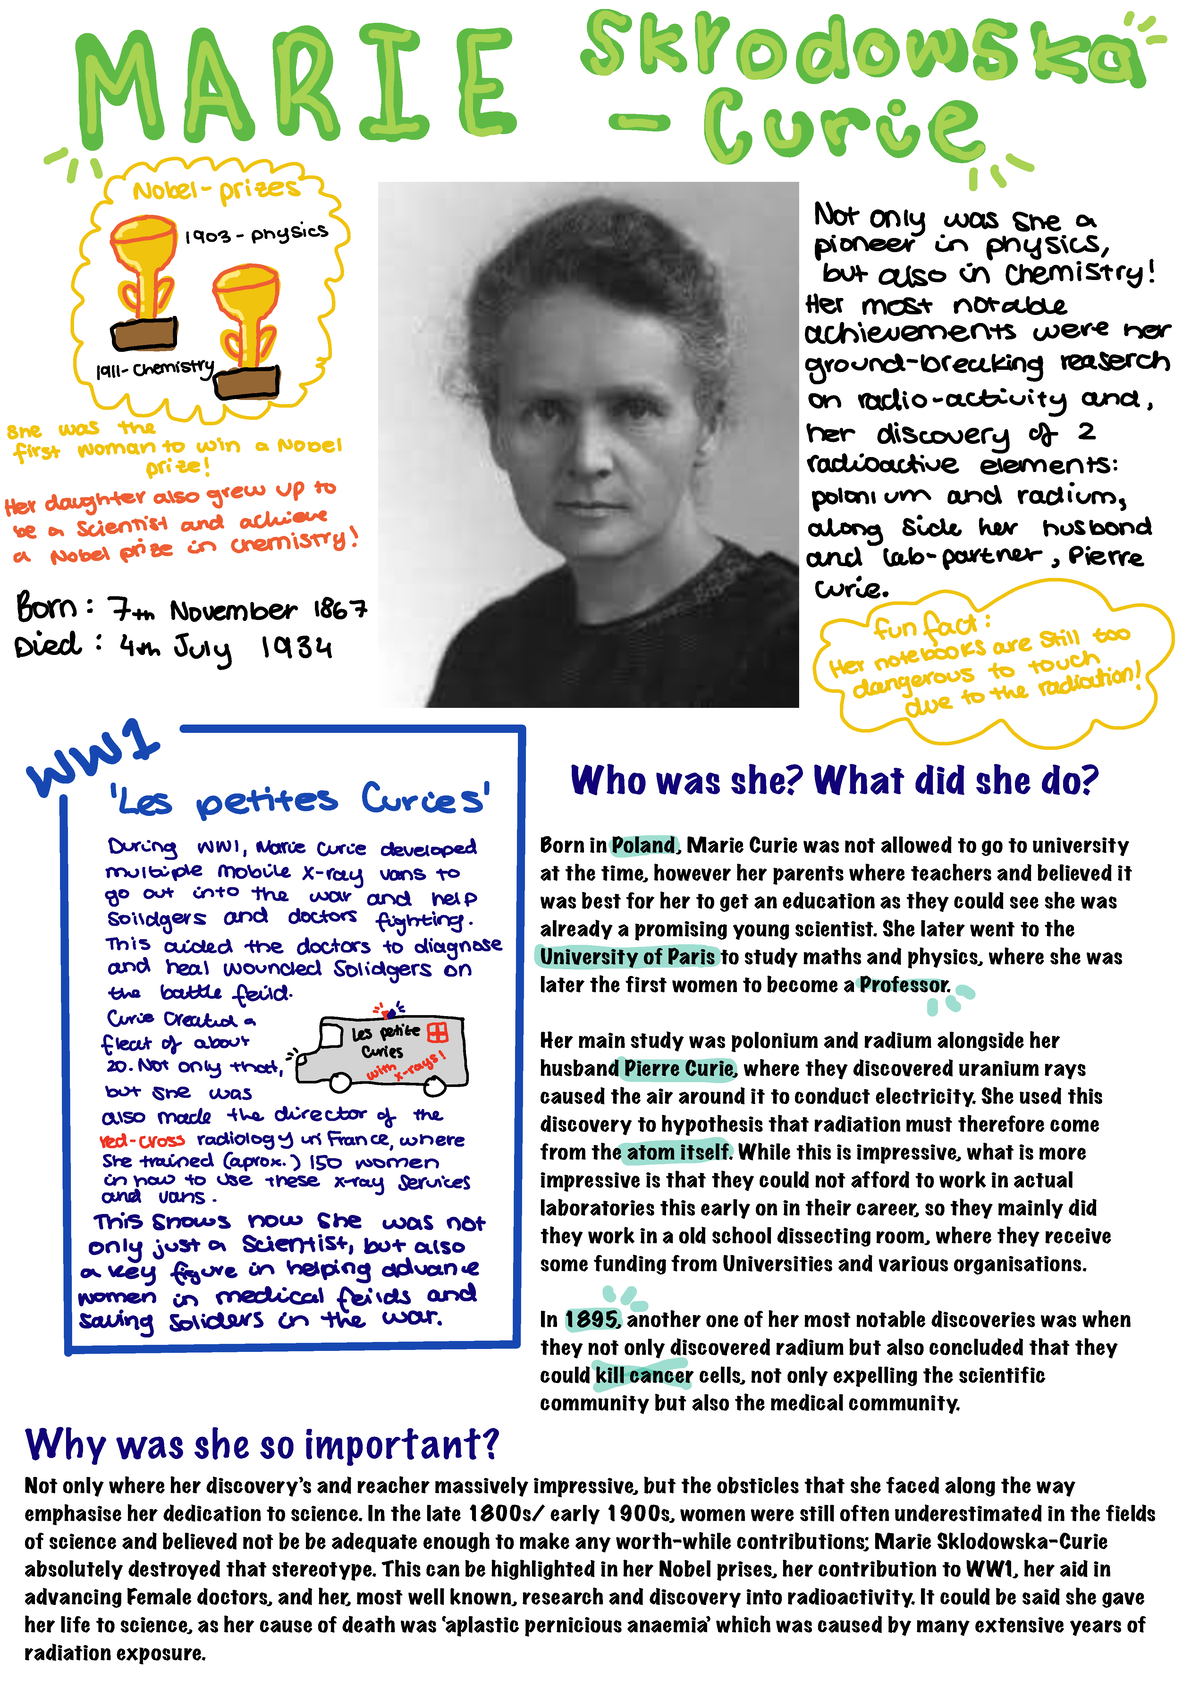 MARIE Skłodowska
- Curie
Nobel-prizes
1903 - physics
1911- Chemistry
She was the
first woman to win a Nobel
prize!
Her daughter also grew up to
be a Scientist and achieve
a Nobel prize in chemistry!
Born : 7th November 1867
Died : 4th July 1934
Not only was she a
pioneer in physics,
but also in chemistry!
Her most notable
achievements were her
ground-breaking reaserch
on radio-activity and,
her discovery of 2
radioactive elements:
polonium and radium,
along side her husbond
and lab-partner , Pierre
Curie.
fun fact:
Her notebooks are still too
dangerous to touch
due to the radiation!
WW1
'Les petites Curies'
During WW1, Marie Curie developed
multiple mobile X-ray vans to
go out into the war and help
Soildgers and doctors fighting.
This aided the doctors to diagnose
and heal wounded Solidgers on
the battle feild.
Curie Created a
fleat of about
20. Not only that,
but she was
also made the director of the
red-cross radiology in France, where
She trained (aprox.) 150 women
in how to use these x-ray services
and vans.
Les petite
Curies
with x-rays!
This shows how she was not
only just a scientist, but also
a key figure in helping advance
women in medical feilds and
saving soliders in the war.
Who was she? What did she do?
Born in Poland, Marie Curie was not allowed to go to university
at the time, however her parents where teachers and believed it
was best for her to get an education as they could see she was
already a promising young scientist. She later went to the
University of Paris to study maths and physics, where she was
later the first women to become a Professor.
Her main study was polonium and radium alongside her
husband Pierre Curie, where they discovered uranium rays
caused the air around it to conduct electricity. She used this
discovery to hypothesis that radiation must therefore come
from the atom itself. While this is impressive, what is more
impressive is that they could not afford to work in actual
laboratories this early on in their career, so they mainly did
they work in a old school dissecting room, where they receive
some funding from Universities and various organisations.
In 1895, another one of her most notable discoveries was when
they not only discovered radium but also concluded that they
could kill cancer cells, not only expelling the scientific
community but also the medical community.
Why was she so important?
Not only where her discovery's and reacher massively impressive, but the obsticles that she faced along the way
emphasise her dedication to science. In the late 1800s/ early 1900s, women were still often underestimated in the fields
of science and believed not be be adequate enough to make any worth-while contributions; Marie Sklodowska-Curie
absolutely destroyed that stereotype. This can be highlighted in her Nobel prises, her contribution to WW1, her aid in
advancing Female doctors, and her, most well known, research and discovery into radioactivity. It could be said she gave
her life to science, as her cause of death was 'aplastic pernicious anaemia' which was caused by many extensive years of
radiation exposure.